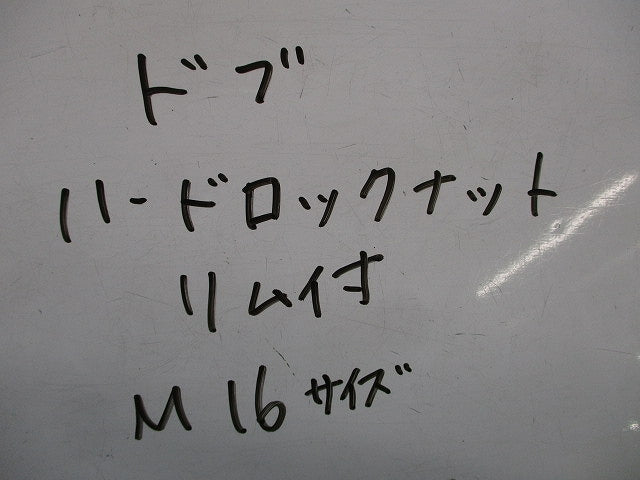 ドブ
ハードロックナット
リム付
M16サイズ